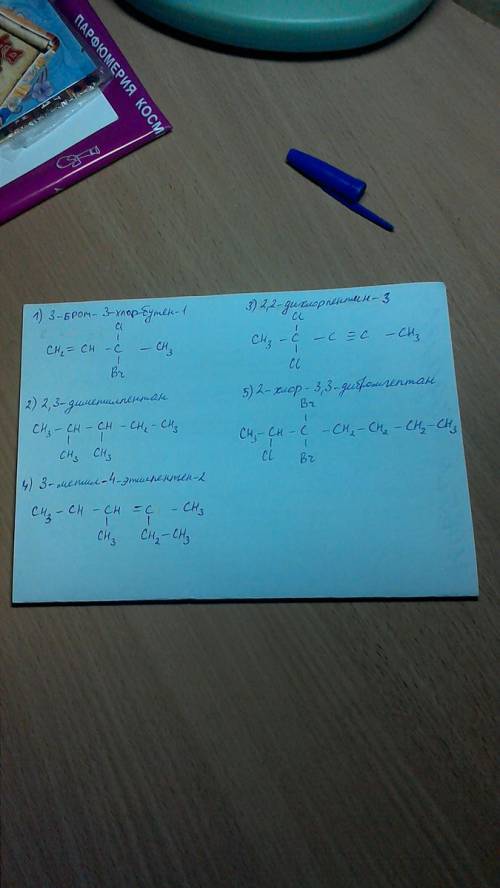 ПАРФЮМЕРИЯ КОСМ
1) 3-БРОМ-3-хлор-бутен-1
Cl
CH₂ = CH - C - CH₃
Br
2) 2,3-диметилпентан
CH₃ - CH - CH - CH₂ - CH₃
CH₃ CH₃
4) 3-метил-4-этилпентен-2
CH₃ - CH - CH = C - CH₃
CH₃ CH₂ - CH₃
3) 2,2-дихлорпентин-3
Cl
CH₃ - C - C ≡ C - CH₃
Cl
5) 2-хлор-3,3-дибромгептан
Br
CH₃ - CH - C - CH₂ - CH₂ - CH₂ - CH₃
Cl Br